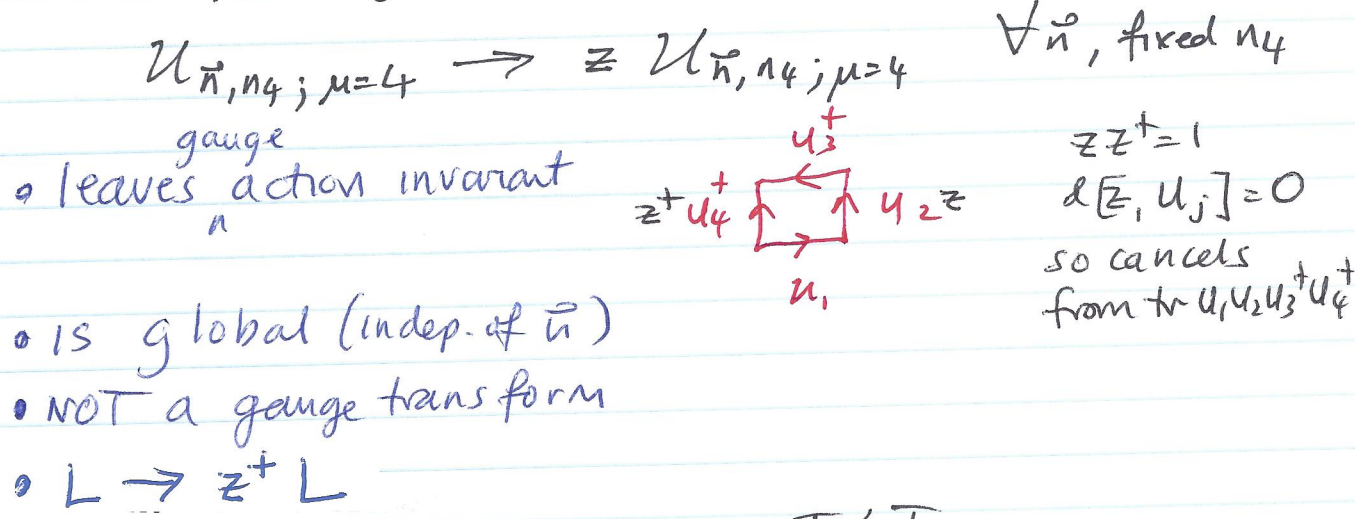 U n⃗, n4 ; μ=4 → z U n⃗, n4 ; μ=4 ∀n⃗, fixed n4
gauge
• leaves ∧ action invariant
u3†
z† u4† u2 z
u1
zz†=1
& [z, Uj]=0
so cancels
from tr U1U2U3†U4†
• is global (indep. of n⃗)
• NOT a gauge transform
• L → z† L